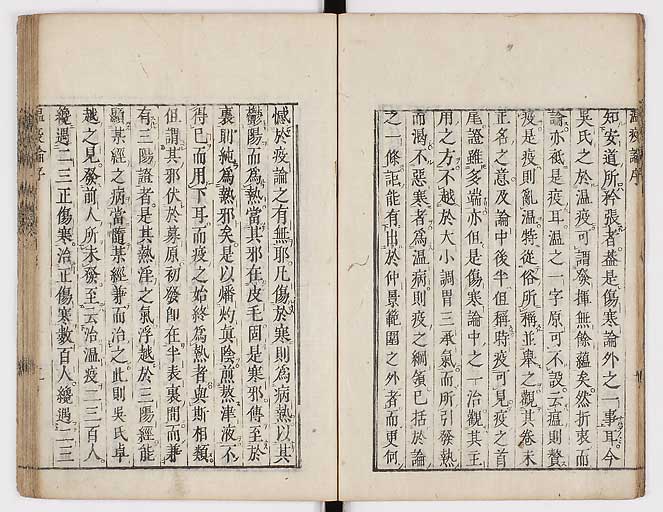 溫疫論序
知安道所矜張者蓋是傷寒論外之一事耳今
吳氏之於溫疫可謂發揮無餘蘊矣然折衷而
論亦祗是疫耳溫之一字原可不設云瘟則贅
疫是疫則亂溫特從俗所稱並舉之觀其卷末
正名之意及論中後半但稱時疫可見疫之首
尾證雖多端亦但是傷寒論中之一治觀其主
用之方不越於大小調胃三承氣而所引發熱
而渴不惡寒者爲溫病則疫之綱領已括於論
之一條詎能有出於仲景範圍之外者而更何
憾於疫論之有無耶凡傷於寒則爲病熱以其
鬱陽而爲熱當其邪在皮毛固是寒邪傳至於
裏則純爲熱邪矣是以燔灼眞陰煎熬津液不
得已而用下耳而疫之始終爲熱者與斯相類
但謂其邪伏於募原初發即在半表裏間而兼
有三陽證者是其熱淫之氣浮越於三陽經能
顯某經之病當隨某經兼而治之此則吳氏卓
越之見發前人所未發至云治溫疫二三百人
纔遇二三正傷寒治正傷寒數百人纔遇二三
溫疫論序